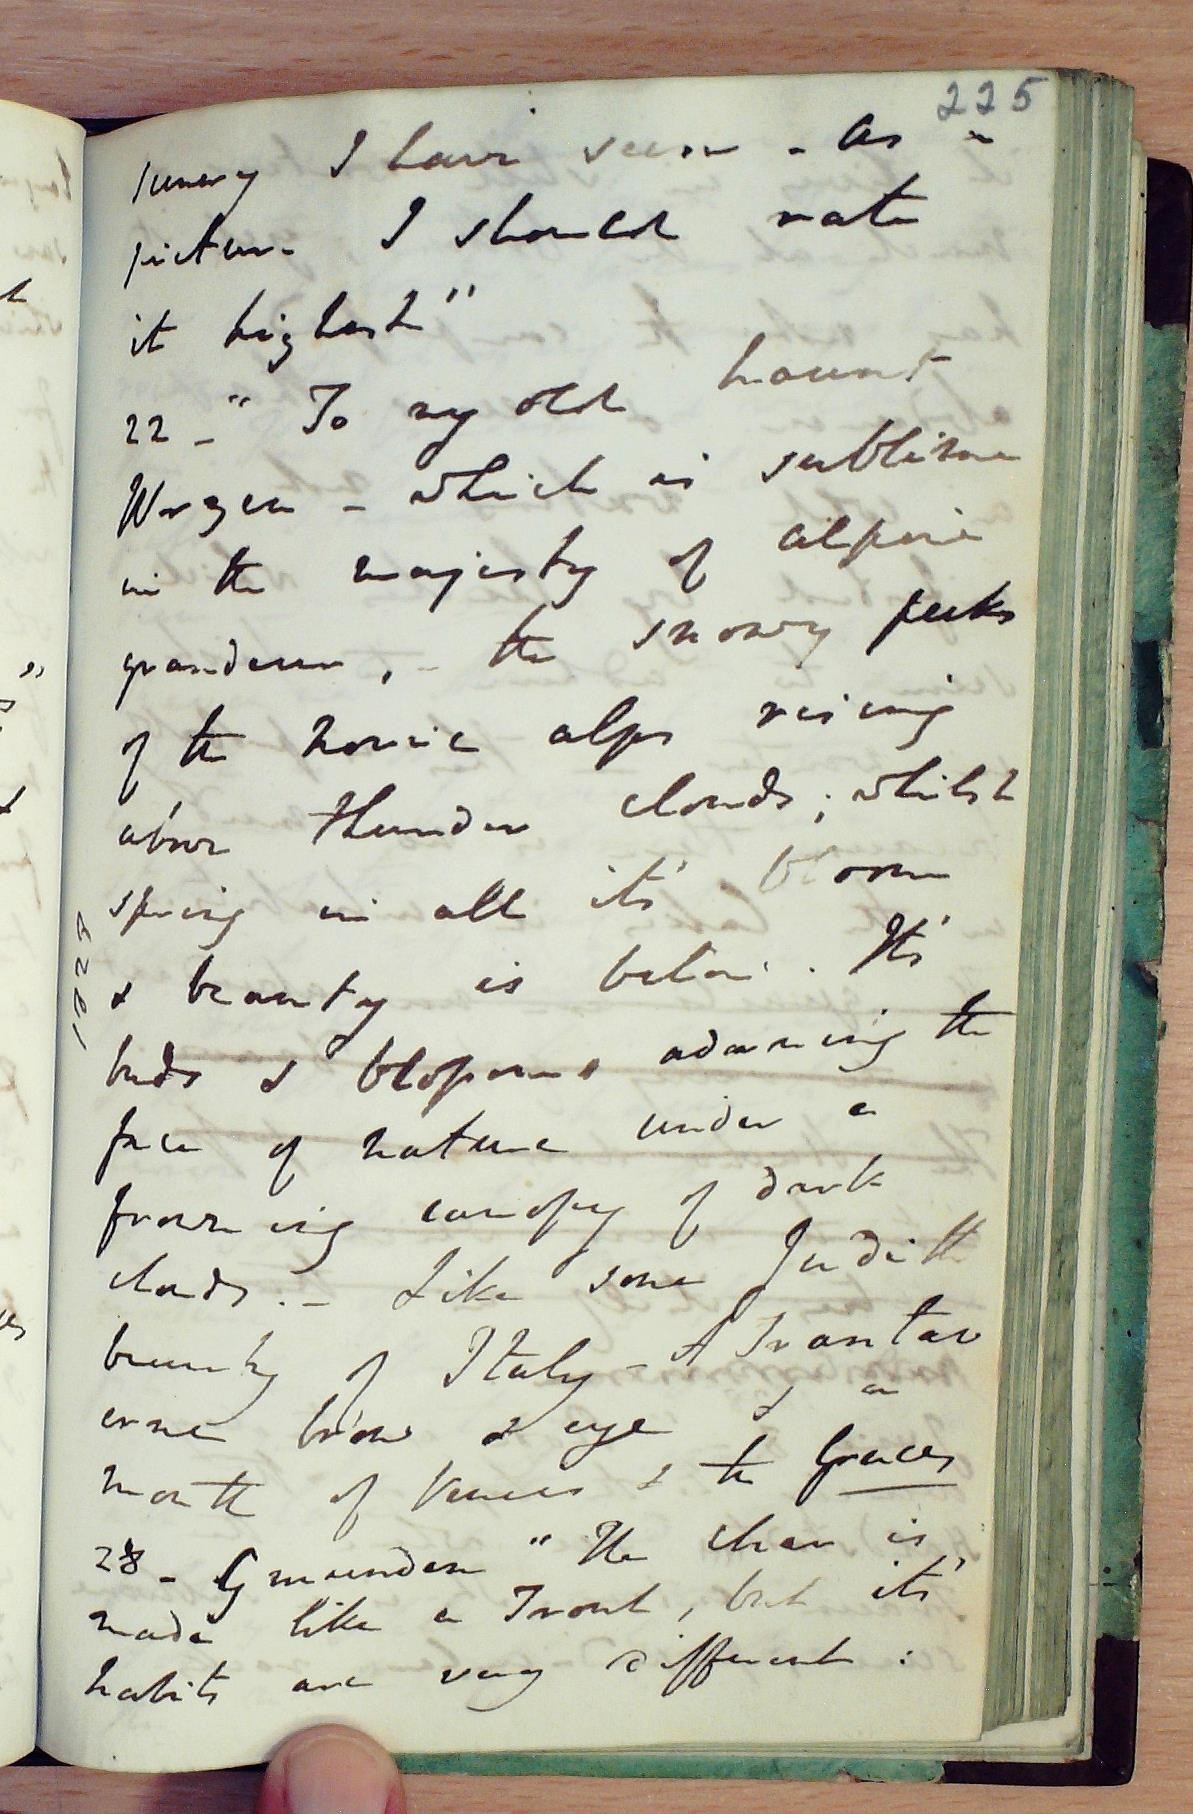 225
scenery I have seen - As a
picture I should rate
it highest"
22 - " To my old haunt
Wurzen - which is sublime
in the majesty of alpine
grandeur, - the snowy peaks
of the Noric alps rising
above thunder clouds; whilst
spring in all it's bloom
& beauty is below. It's
buds & blossoms adorning the
face of nature under a
frowning canopy of dark
clouds. - Like some Judith
beauty of Italy - A Transtav
erne brow & eye & a
mouth of Venus & the Graces
28 - Gmunden " The char is
made like a Trout, but it's
habits are very different :